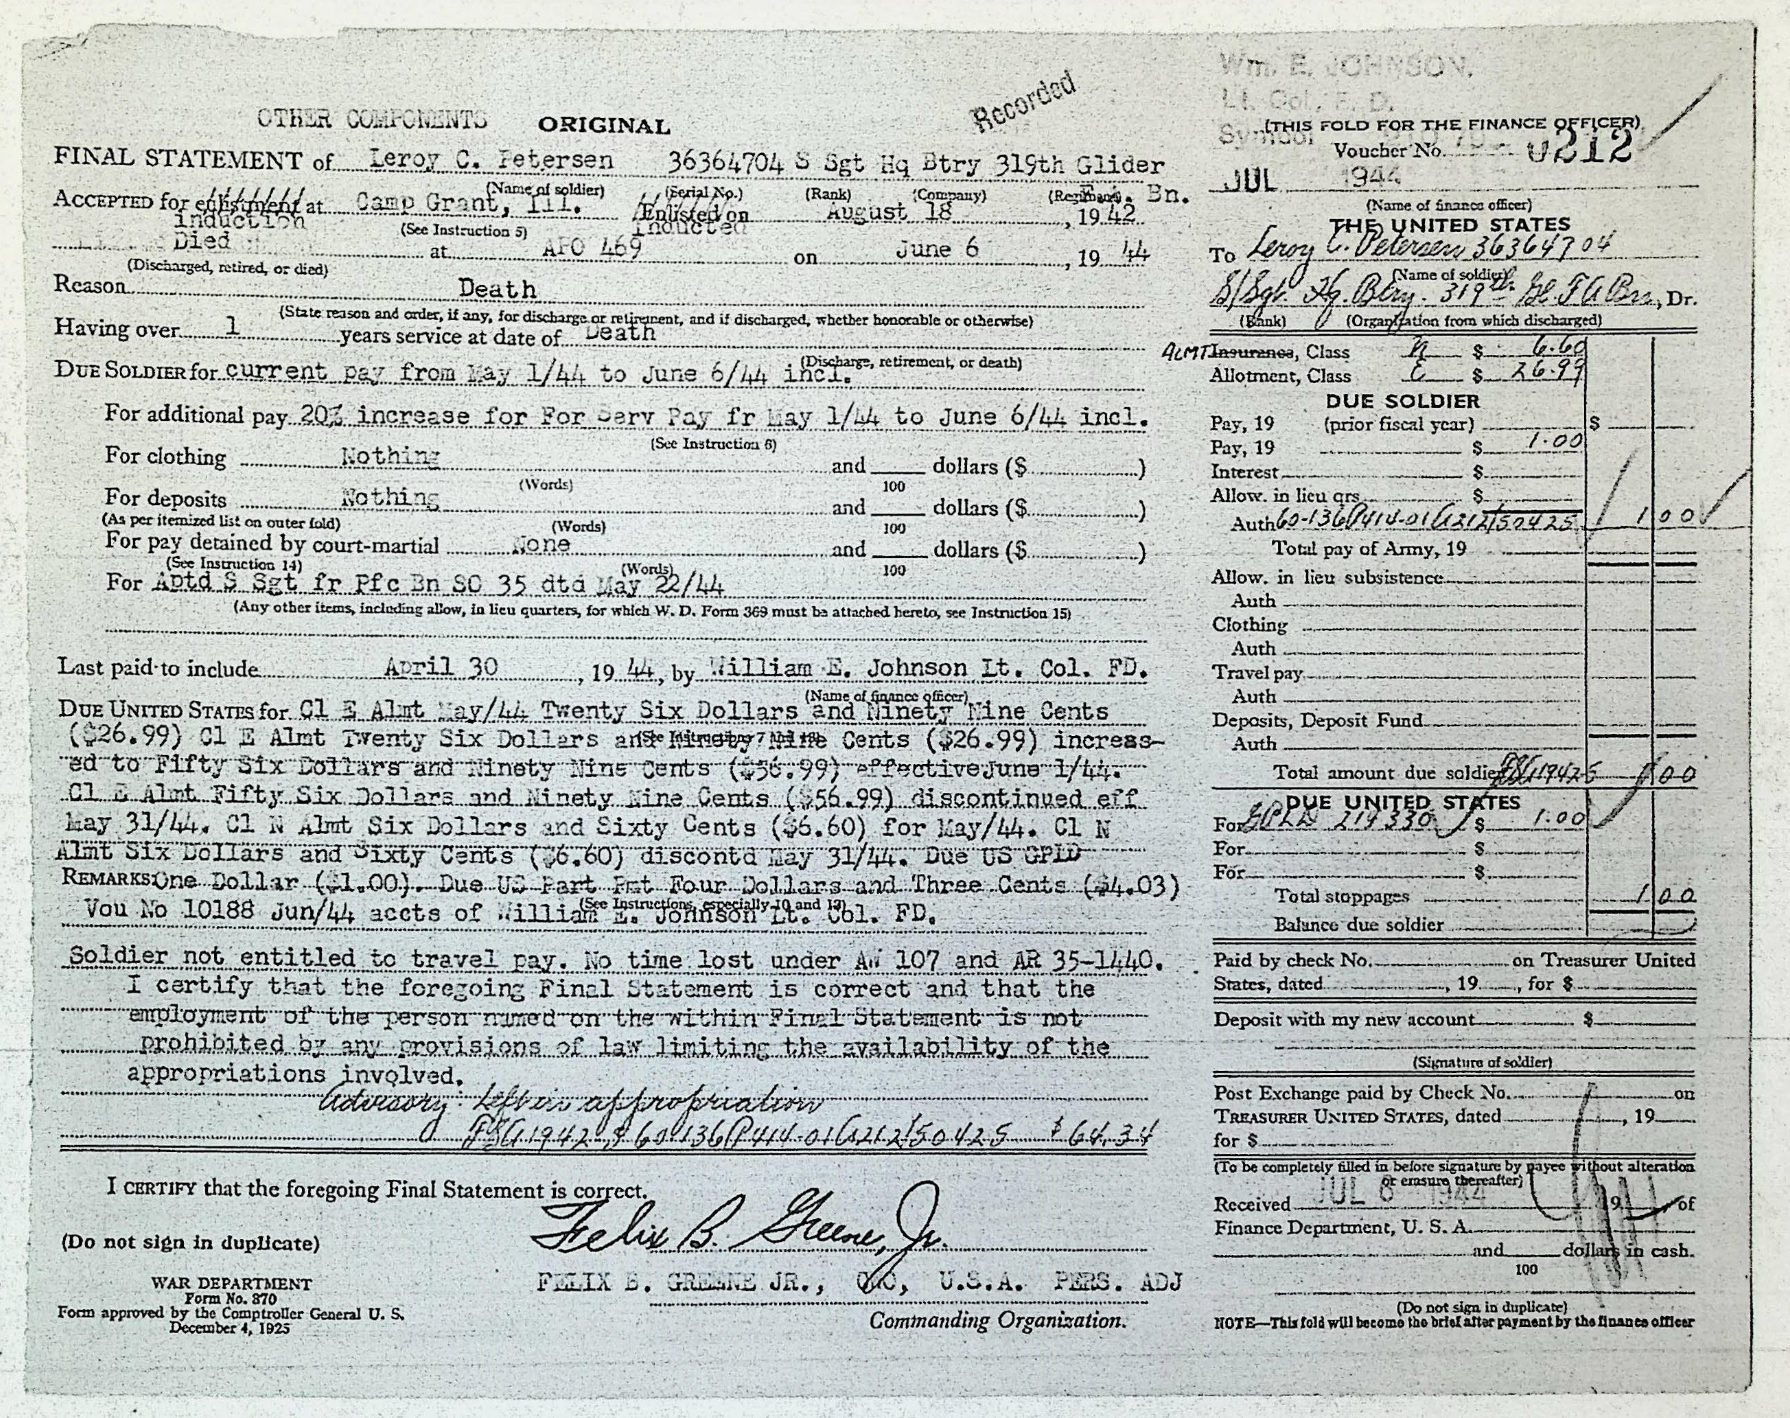 OTHER COMPONENTS ORIGINAL
Recorded
FINAL STATEMENT of Leroy C. Petersen 36364704 S Sgt Hq Btry 319th Glider
(Name of soldier) (Serial No.) (Rank) (Company) Bn.
ACCEPTED for enlistment at Camp Grant, Ill. Enlisted on August 18, 1942
induction (See Instruction 5) Inducted
Died at APO 469 on June 6, 19 44
(Discharged, retired, or died)
Reason Death
(State reason and order, if any, for discharge or retirement, and if discharged, whether honorable or otherwise)
Having over 1 years service at date of Death
(Discharge, retirement, or death)
DUE SOLDIER for current pay from May 1/44 to June 6/44 incl.
For additional pay 20% increase for For Serv Pay fr May 1/44 to June 6/44 incl.
(See Instruction 6)
For clothing Nothing and ____ dollars ($ )
(Words) 100
For deposits Nothing and ____ dollars ($ )
(As per itemized list on outer fold) (Words) 100
For pay detained by court-martial None and ____ dollars ($ )
(See Instruction 14) (Words) 100
For Aptd S Sgt fr Pfc Bn SO 35 dtd May 22/44
(Any other items, including allow, in lieu quarters, for which W. D. Form 369 must be attached hereto, see Instruction 15)
Last paid to include April 30, 19 44, by William E. Johnson Lt. Col. FD.
(Name of finance officer)
DUE UNITED STATES for Cl E Almt May/44 Twenty Six Dollars and Ninety Nine Cents
($26.99) Cl E Almt Twenty Six Dollars and Ninety Nine Cents ($26.99) increas-
ed to Fifty Six Dollars and Ninety Nine Cents ($56.99) effective June 1/44.
Cl E Almt Fifty Six Dollars and Ninety Nine Cents ($56.99) discontinued eff
May 31/44. Cl N Almt Six Dollars and Sixty Cents ($6.60) for May/44. Cl N
Almt Six Dollars and Sixty Cents ($6.60) discontd May 31/44. Due US GPLD
REMARKS: One Dollar ($1.00). Due US Part Pmt Four Dollars and Three Cents ($4.03)
(See Instructions, especially 10 and 13)
Vou No 10188 Jun/44 accts of William E. Johnson Lt. Col. FD.
Soldier not entitled to travel pay. No time lost under AW 107 and AR 35-1440.
I certify that the foregoing Final Statement is correct and that the
employment of the person named on the within Final Statement is not
prohibited by any provisions of law limiting the availability of the
appropriations involved.
Advisory: Left in appropriation
60-136 P414-01 A212/50425 $64.34
I CERTIFY that the foregoing Final Statement is correct.
Felix B. Greene, Jr.
(Do not sign in duplicate)
FELIX B. GREENE JR., CWO, U.S.A. PERS. ADJ
Commanding Organization.
WAR DEPARTMENT
Form No. 370
Form approved by the Comptroller General U. S.
December 4, 1925
Wm. E. JOHNSON,
Lt. Col., F. D.
Symbol
(THIS FOLD FOR THE FINANCE OFFICER)
Voucher No. 0212
JUL 1944
(Name of finance officer)
THE UNITED STATES
To Leroy C. Petersen 36364704
(Name of soldier)
S/Sgt Hq. Btry. 319th Gl. F A Bn, Dr.
(Rank) (Organization from which discharged)
ALMT Insurance, Class N $ 6.60
Allotment, Class E $ 26.99
DUE SOLDIER
Pay, 19 (prior fiscal year) $
Pay, 19 $ 1.00
Interest $
Allow. in lieu qrs. $
Auth 60-136 P414-01 A212/50425 1 00
Total pay of Army, 19
Allow. in lieu subsistence
Auth
Clothing
Auth
Travel pay
Auth
Deposits, Deposit Fund
Auth
Total amount due soldier 1 00
DUE UNITED STATES
For GPLD 219330 $ 1.00
For $
For $
Total stoppages 1 00
Balance due soldier
Paid by check No. on Treasurer United
States, dated , 19 , for $
Deposit with my new account $
(Signature of soldier)
Post Exchange paid by Check No. on
TREASURER UNITED STATES, dated , 19
for $
(To be completely filled in before signature by payee without alteration
or erasure thereafter)
Received JUL 6 1944 19 of
Finance Department, U. S. A.
and ____ dollars in cash.
100
(Do not sign in duplicate)
NOTE—This fold will become the brief after payment by the finance officer